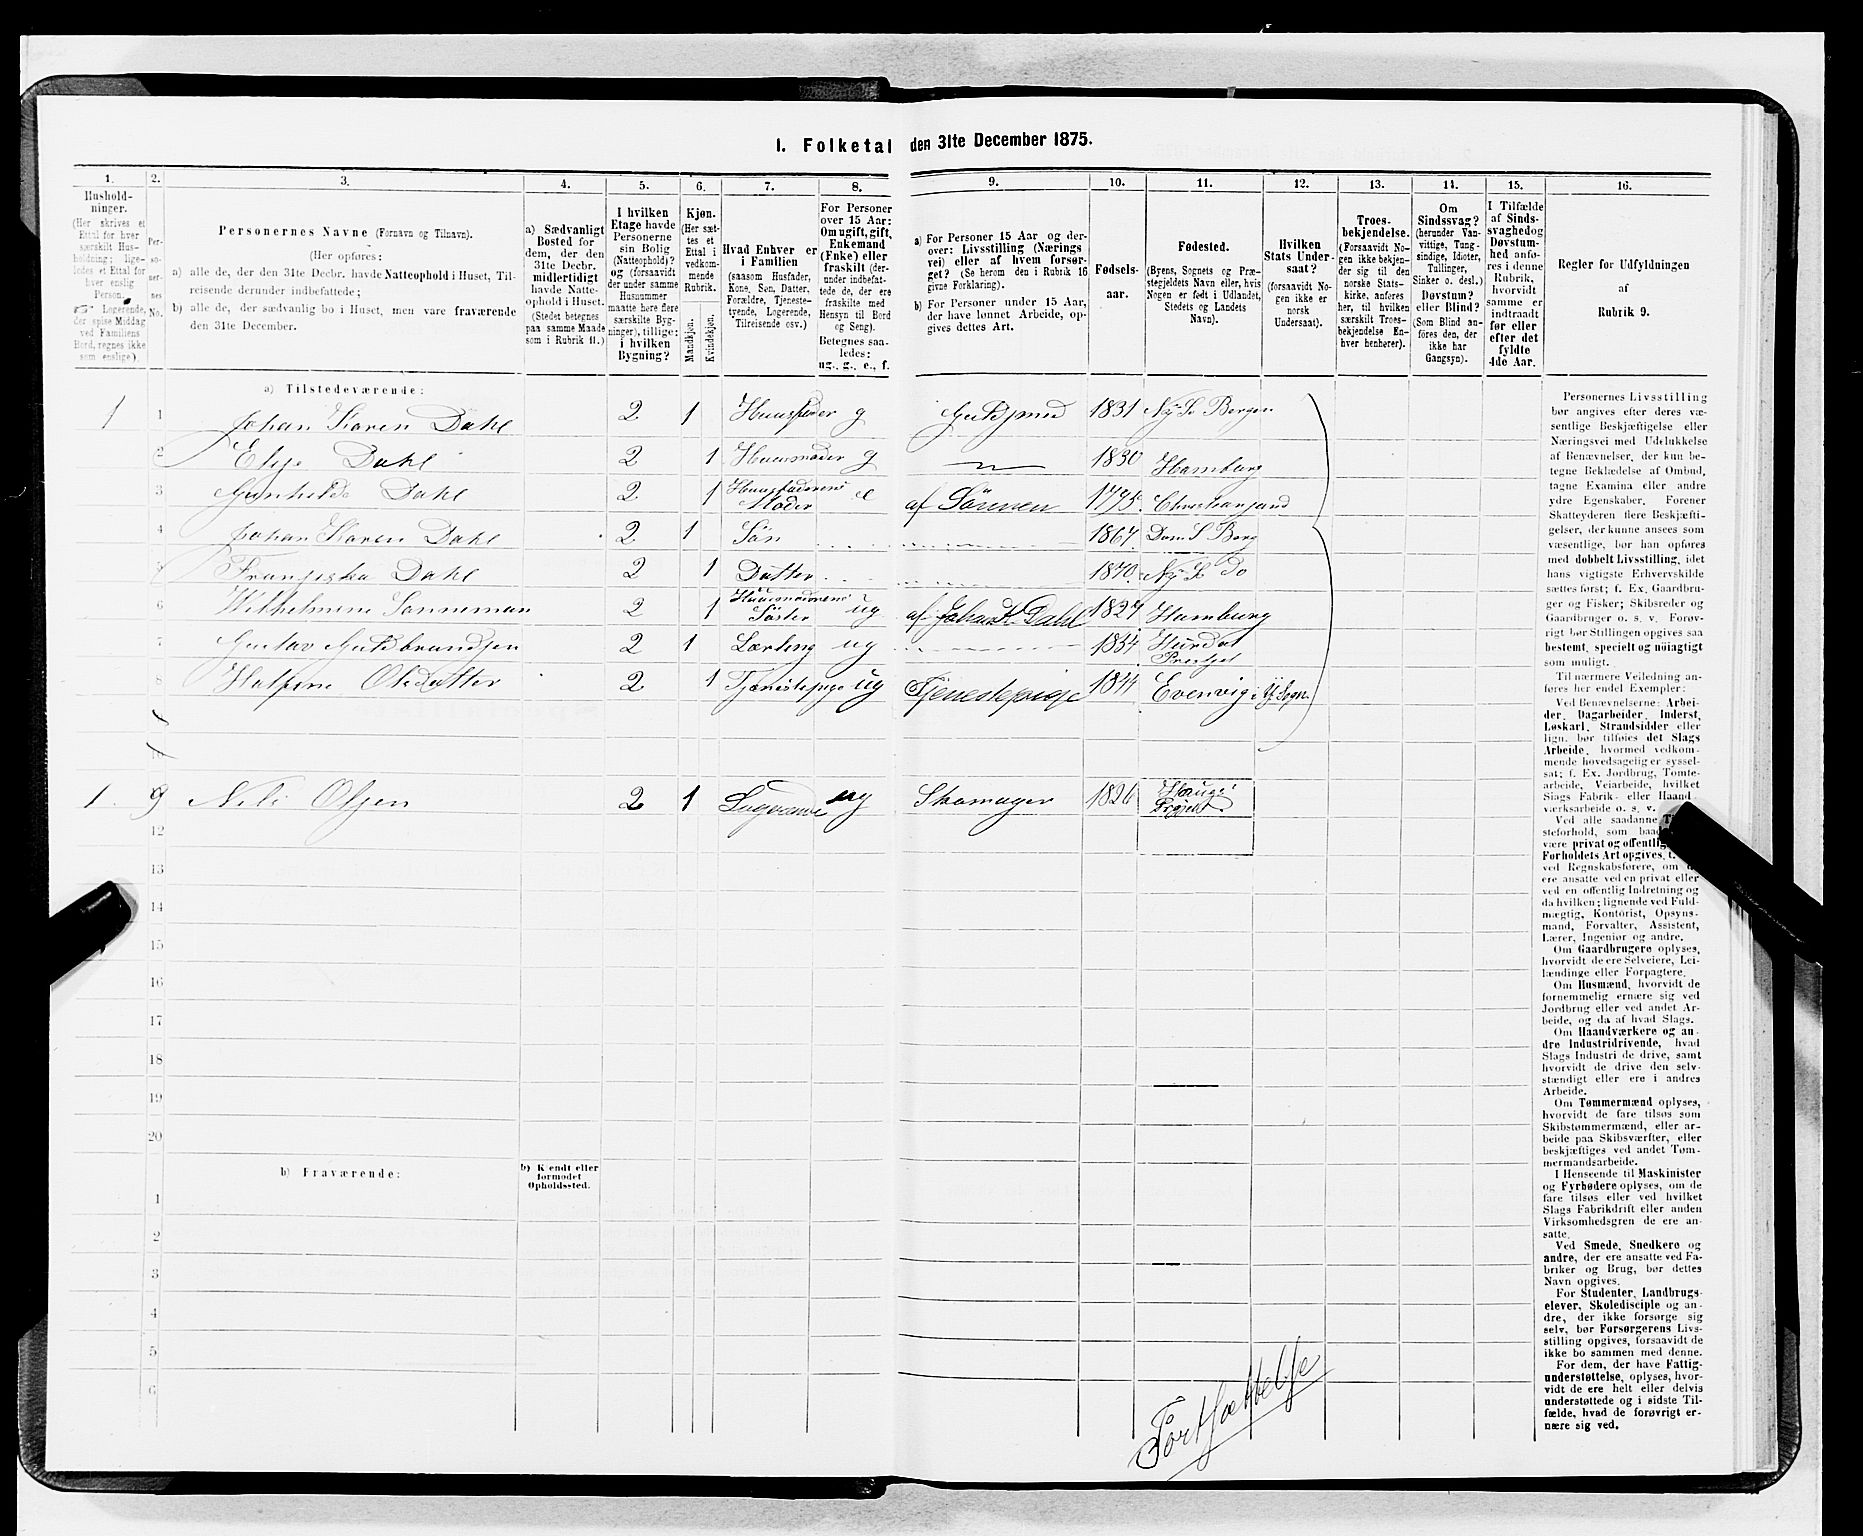 I. Folketal den 31te December 1875.
1.
Hushold-
ninger.
(Her skrives et
Ettal for hver
særskilt Hus-
holdning; lige-
ledes et Ettal for
hver enslig
Person.
☞ Logerende,
der spise Middag
ved Familiens
Bord, regnes ikke
som enslige.)
2.
Per-
so-
ner-
nes
No.
3.
Personernes Navne (Fornavn og Tilnavn).
(Her opføres:
a) alle de, der den 31te Decbr. havde Natteophold i Huset, Til-
reisende derunder indbefattede;
b) alle de, der sædvanlig bo i Huset, men vare fraværende
den 31te December.
4.
a) Sædvanligt
Bosted for
dem, der den
31te Decbr.
midlertidigt
havde Natte-
ophold i Huset.
(Stedet betegnes
paa samme Maade
som i Rubrik 11.)
5.
I hvilken
Etage havde
Personerne
sin Bolig
(Natteophold)?
og (forsaavidt
der under samme
Husnummer
maatte høre flere
særskilte Byg-
ninger), tillige:
i hvilken
Bygning?
6.
Kjøn.
(Her sæt-
tes et
Ettal i
vedkom-
mende
Rubrik.
Mandkjøn.
Kvindekjøn.
7.
Hvad Enhver er
i Familien
(saasom Husfader,
Kone, Søn, Datter,
Forældre, Tjeneste-
tyende, Logerende,
Tilreisende osv.)
8.
For Personer
over 15 Aar:
Om ugift, gift,
Enkemand
(Enke) eller
fraskilt (der-
under indbefat-
tede de, der ere
fraskilte med
Hensyn til Bord
og Seng).
Betegnes saa-
ledes:
ug., g., e., f.
9.
a) For Personer 15 Aar og der-
over: Livsstilling (Nærings
vei) eller af hvem forsør-
get? (Se herom den i Rubrik 16
givne Forklaring).
b) For Personer under 15 Aar,
der have lønnet Arbeide, op-
gives dettes Art.
10.
Fødsels-
aar.
11.
Fødested.
(Byens, Sognets og Præ-
stegjeldets Navn eller, hvis
Nogen er født i Udlandet,
Stedets og Landets
Navn).
12.
Hvilken
Stats Under-
saat?
(forsaavidt No-
gen ikke er
norsk
Undersaat).
13.
Troes-
bekjendelse.
(Forsaavidt No-
gen ikke bekjen-
der sig til den
norske Stats-
kirke, anføres
her, til hvilken
særskilt Troes-
bekjendelse En-
hver henhører).
14.
Om
Sindssvag?
(herunder Van-
vittige, Tung-
sindige, Idioter,
Tullinger,
Sinker o. desl.)
Døvstum?
eller Blind?
(Som Blind an-
føres den, der
ikke har
Gangsyn).
15.
I Tilfælde
af Sinds-
svaghed og
Døvstum-
hed anfø-
res i denne
Rubrik,
hvorvidt
samme er
indtraadt
før eller
efter det
fyldte
4de Aar.
16.
Regler for Udfyldningen
af
Rubrik 9.
a) Tilstedeværende:
1 1 Johan Koren Dahl 2 1 Huusfader g Guldsmed 1831 Ny S Bergen
2 Elise Dahl 2 1 Huusmoder g 1830 Hamburg
3 Gunhilde Dahl 2 1 Huusfaderens Moder e af Sönnen 1795 Christiansand
4 Johan Koren Dahl 2 1 Sön 1867 Dom S Berg
5 Franziska Dahl 2 1 Datter 1870 Ny S Do
6 Wilhelmine Sonneman 2 1 Huusmoderens Söster ug af Johan K Dahl 1827 Hamburg
7 Gustav Guldbrandsen 2 1 Lærling ug 1854 Hurdal Prestgel
8 Olsdatter 2 1 Tjenestepige ug Tjenestepige 1844 Evenvig Y. Sogn
10
1. 9 Nils Olsen 2 1 Logerende ug Skomager 1826
12
13
14
15
16
17
18
19
20
b) Fraværende:
b) Kjendt eller
formodet
Opholdssted.
1
2
3
4
5
6
Personernes Livsstilling
bør angives efter deres væ-
sentlige Beskjæftigelse eller
Næringsvei med Udelukkelse
af Benævnelser, der kun be-
tegne Beklædelse af Ombud,
tagne Examina eller andre
ydre Egenskaber. Forener
Skatteyderen flere Beskjæfti-
gelser, der kunne ansees som
væsentlige, bør han opføres
med dobbelt Livsstilling, idet
hans vigtigste Erhvervskilde
sættes først; f. Ex. Gaardbru-
ger og Fisker; Skibsreder og
Gaardbruger o. s. v. Forøv-
rigt bør Stillingen opgives saa
bestemt, specielt og nøiagtigt
som muligt.
Til nærmere Veiledning an-
føres her endel Exempler:
Ved Benævnelserne: Arbei-
der, Dagarbeider, Inderst,
Løskarl, Strandsidder eller
lign. bør tilføies det Slags
Arbeide, hvormed vedkom-
mende hovedsagelig er syssel-
sat; f. Ex. Jordbrug, Tomte-
arbeide, Veiarbeide, hvilket
Slags Fabrik- eller Haand-
værksarbeide o. s. v.
Ved alle saadanne
steforhold, som
være privat og offentlig,
Forholdets Art opgives,
ved Regnskabsførere, om
ere ansatte ved en privat eller
ved en offentlig Indretning og
da hvilken; lignende ved Fuld-
mægtig, Kontorist, Opsyns-
mand, Forvalter, Assistent,
Lærer, Ingeniør og andre.
Om Gaardbrugere oplyses,
hvorvidt de ere Selveiere, Lei-
lændinge eller Forpagtere.
Om Husmænd, hvorvidt de
fornemmelig ernære sig ved
Jordbrug eller ved andet Ar-
beide, og da af hvad Slags.
Om Haandværkere og an-
dre Industridrivende, hvad
Slags Industri de drive, samt
hvorvidt de drive den selv-
stændigt eller ere i andres
Arbeide.
Om Tømmermænd oplyses,
hvorvidt de fare tilsøs som
Skibstømmermænd, eller ar-
beide paa Skibsværfter, eller
beskjæftiges ved andet Tøm-
mermandsarbeide.
I Henseende til Maskinister
og Fyrbødere oplyses, om de
fare tilsøs eller ved hvilket
Slags Fabrikdrift eller anden
Virksomhedsgren de ere an-
satte.
Ved Smede, Snedkere og
andre, der ere ansatte ved Fa-
briker og Brug, bør dettes
Navn opgives.
For Studenter, Landbrugs-
elever, Skoledisciple og an-
dre, der ikke forsørge sig
selv, bør Forsørgerens Livs-
stilling opgives, forsaavidt de
ikke bo sammen med denne.
For dem, der have Fattig-
understøttelse, oplyses, hvor-
vidt de ere helt eller delvis
understøttede og i sidste Til-
fælde, hvad de forøvrigt er-
nære sig ved.
Fortsættelse